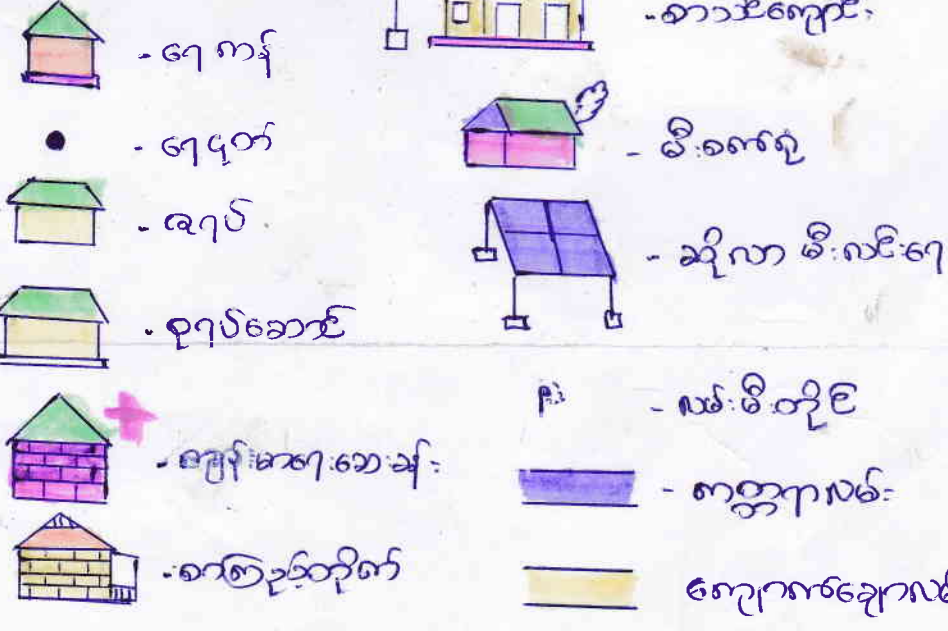 - ရေကန်
- ရေတွက်
- ဇရပ်
- စုရပ်ဆောင်
- ကျန်းမာရေးဆေးခန်း
- စာကြည့်တိုက်
- စာသင်ကျောင်း
- မီးစက်ရုံ
- ဆိုလာ မီးလင်းရေ
- လမ်းမီးတိုင်
- ကတ္တရာလမ်း
ကျောက်ချောလမ်